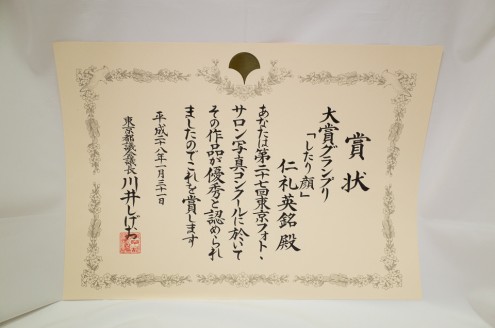 賞状
大賞グランプリ
「したり顔」
仁礼英銘 殿
あなたは第二十七回東京フォト・
サロン写真コンクールに於いて
その作品が優秀と認められ
ましたのでこれを賞します
平成二十八年一月三十一日
東京都議会議長 川井しげお